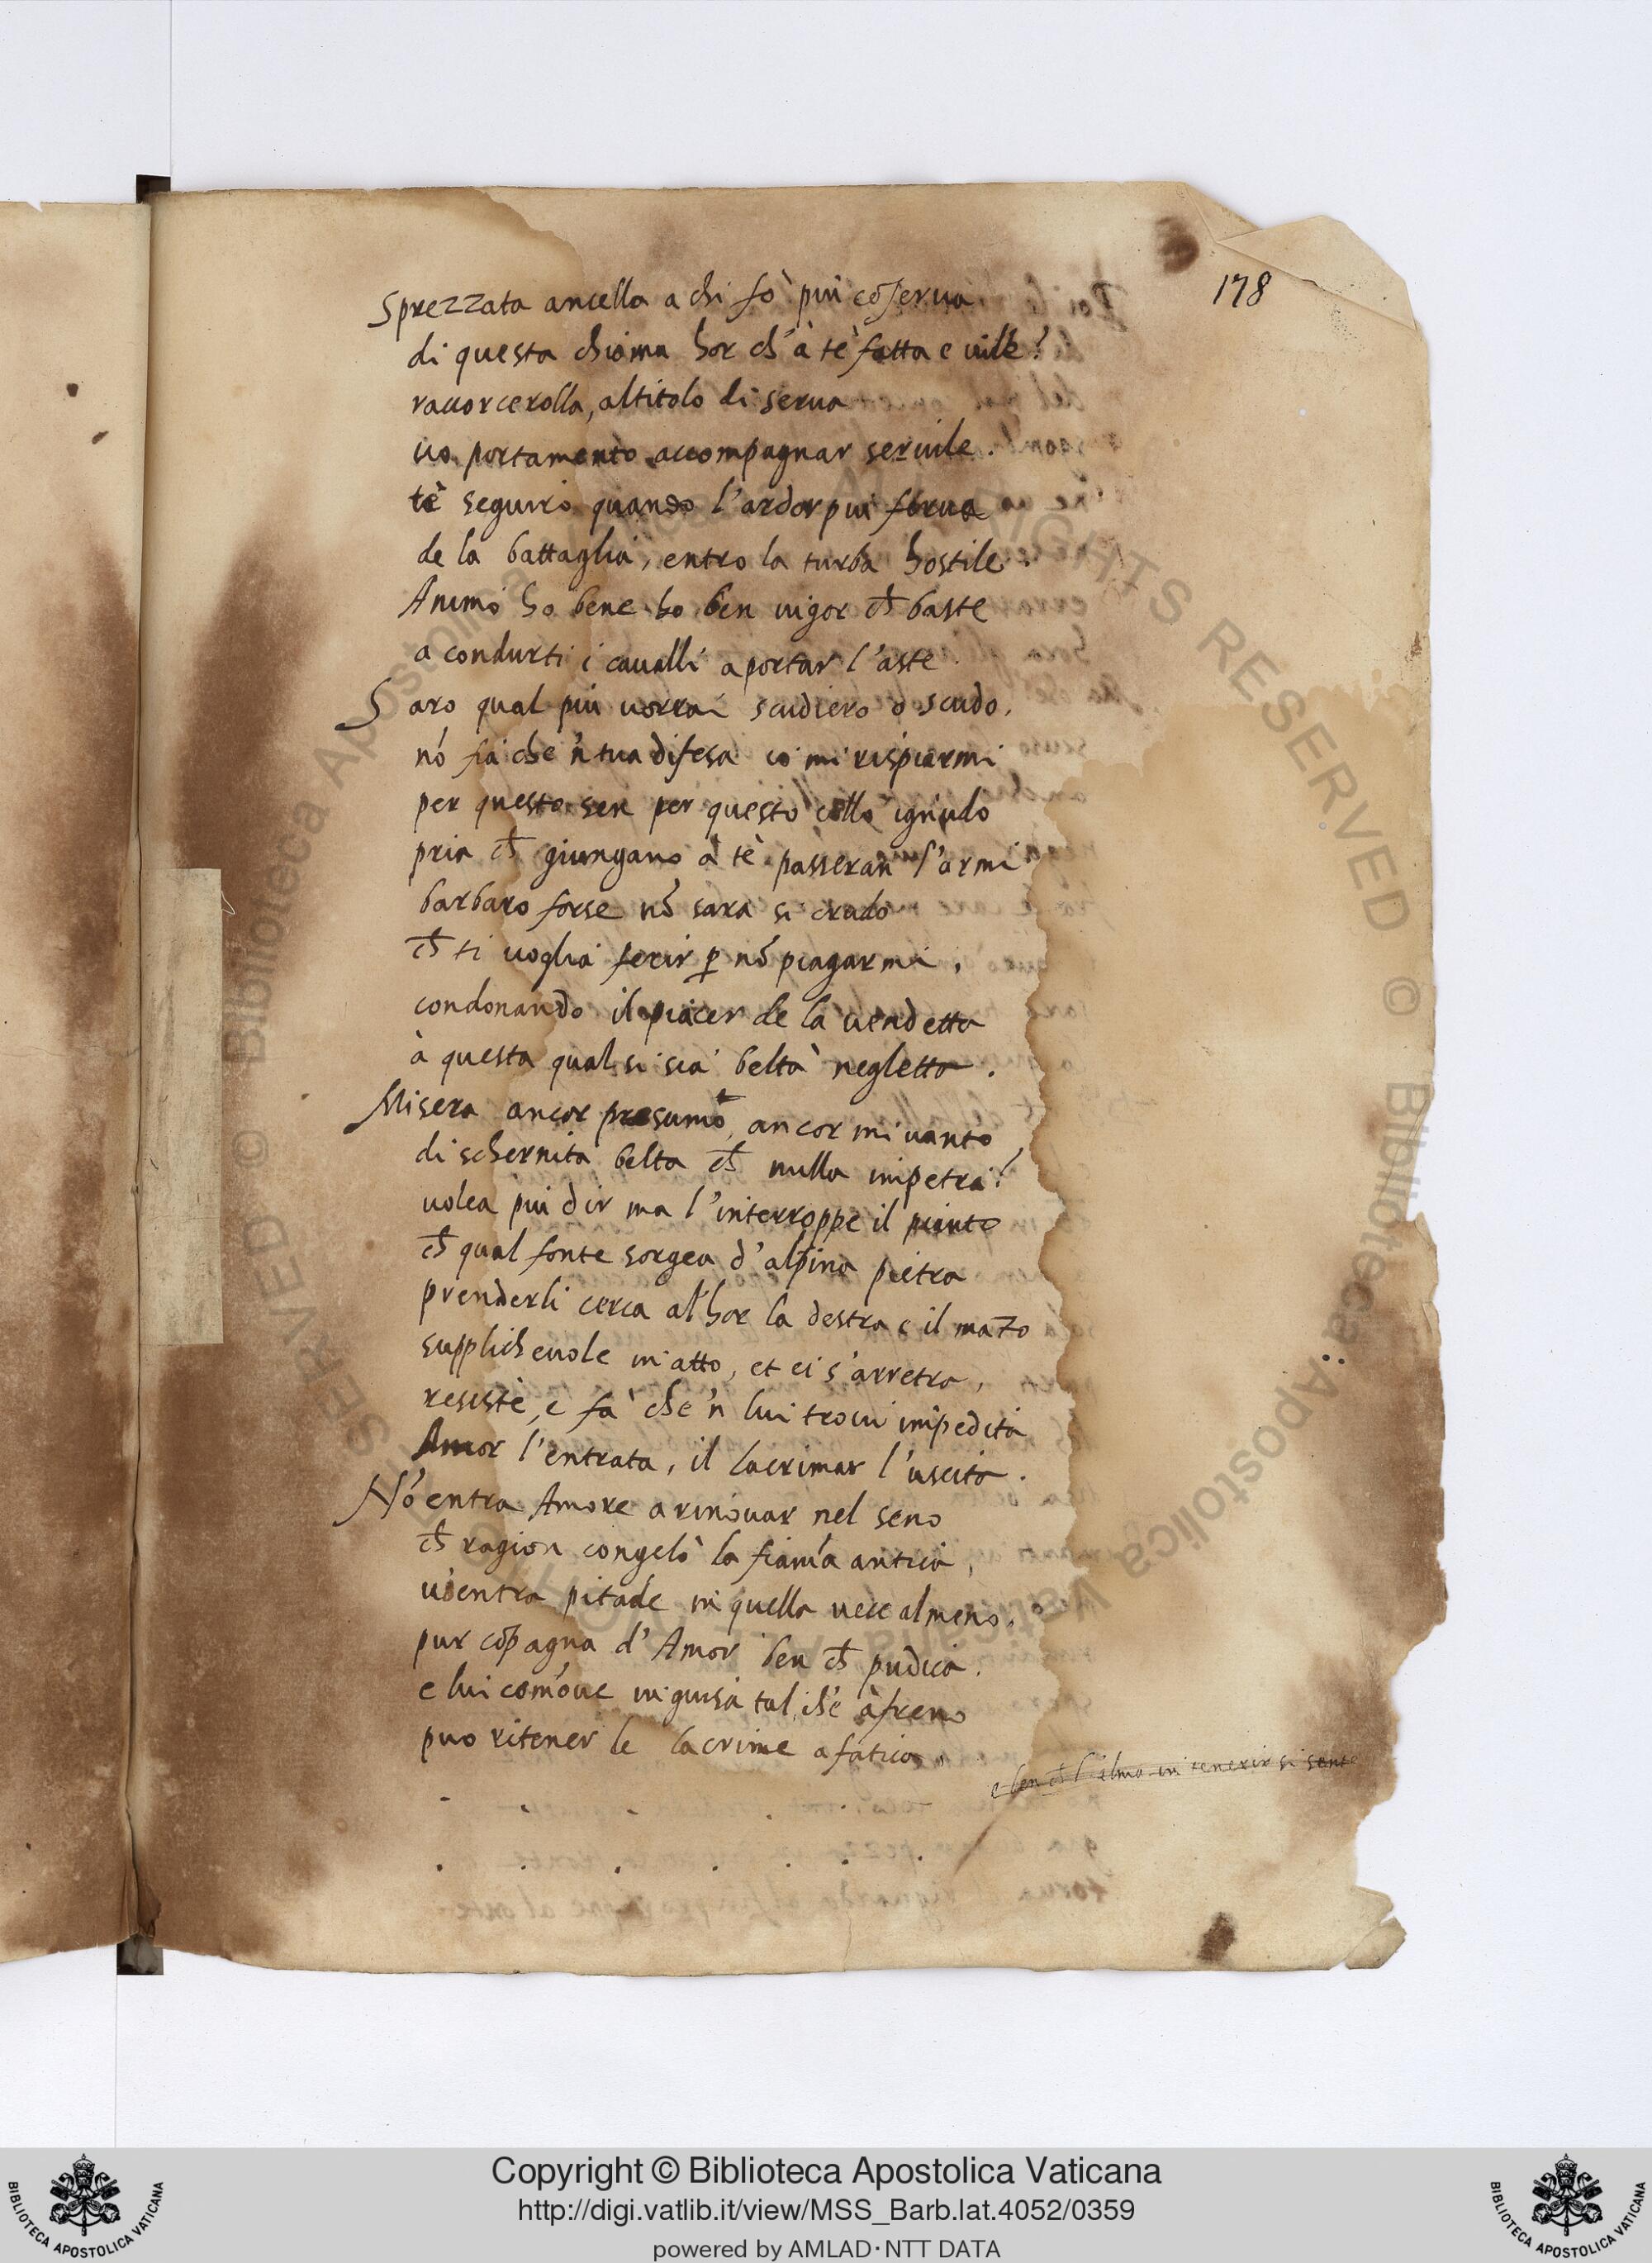 178
Sprezzata ancella a chi fò più cõserva
di questa chioma hor ch'à tè fatta e uile?
raccorcerolla, al titolo di serua
uo portamento accompagnar seruile.
tè seguirò quando l'ardor piu ferua
de la battaglia, entro la turba hostile.
Animo ho bene ho ben uigor ch̃ baste
a condurti i caualli a portar l'aste.
Saro qual piu uorrai scudiero o scudo,
nõ fia che 'n tua difesa io mi risparmi
per questo sen per questo collo ignudo
pria ch̃ giungano à tè passeran l'armi
barbaro forse nõ sara si crudo
ch̃ ti uoglia ferir p̱ nõ piagarmi,
condonando il piacer de la uendetta
à questa qual si sia beltà negletta.
Misera ancor presumo, ancor mi uanto
di schernita belta ch̃ nulla impetra?
uolea piu dir ma l'interroppe il pianto
ch̃ qual fonte sorgea d'alpina pietra
prenderli cerca al'hor la destra e il mãto
supplicheuole in atto, et ei s'arretra,
resiste, e fà che 'n lui troui impedita
Amor l'entrata, il lacrimar l'uscita.
Nõ entra Amore a rinouar nel seno
ch̃ ragion congelò la fiãma antica,
u'entra pitade in quella uece almeno,
pur cõpagna d'Amor ben ch̃ pudica.
e lui com̃oue in guisa tal ch'è à freno
puo ritener le lacrime a fatica.
e ben ch̃ l'alma in tenerir si sente
Copyright © Biblioteca Apostolica Vaticana
http://digi.vatlib.it/view/MSS_Barb.lat.4052/0359
powered by AMLAD・NTT DATA
BIBLIOTECA APOSTOLICA VATICANA
BIBLIOTECA APOSTOLICA VATICANA